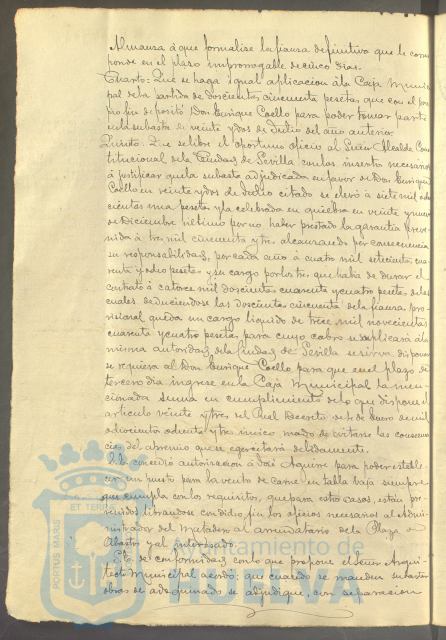 Almansa á que formalise la fianza definitiva que le corres
ponde en el plazo improrrogable de cinco dias.
Cuarto: Que se haga igual aplicacion á la Caja Munici
pal de la partida de doscientas cincuenta pesetas, que con el pro
pio fin depositó Don Enrique Coello para poder tomar parte
en la subasta de veinte y dos de Julio del año anterior.
Quinto: Que se libre el oportuno oficio al Señor Alcalde Cons
titucional de la Ciudad de Sevilla con los insertos necesarios
á justificar que la subasta adjudicada en favor de Don Enrique
Coello en veinte y dos de Julio citado se elevó á siete mil ocho
cientas una pesetas y la celebrada en quiebra en veinte y nueve
de Diciembre último por no haber prestado la garantia preve
nida á tres mil cincuenta y tres alcanzando por consecuencia
su responsabilidad, por cada año á cuatro mil setecientas cua
renta y ocho pesetas y su cargo por los tres que habia de durar el
contrato á catorce mil doscientas cuarenta y cuatro pesetas de las
cuales deduciendose las doscientas cincuenta de la fianza pro
visional queda un cargo liquido de trece mil novecientas
cuarenta y cuatro pesetas, para cuyo cobro suplicará á la
misma autoridad de la Ciudad de Sevilla se sirva disponer
se requiera al Don Enrique Coello para que en el plazo de
tercero dia ingrese en la Caja Municipal la men
cionada suma en cumplimiento de lo que dispone el
articulo veinte y tres del Real Decreto de 4 de Enero de mil
ochocientos ochenta y tres único modo de evitarse las consecuen
cias del apremio que se egercitará debidamente.
S.E. concedió autorizacion á José Aguirre para poder estable
cer un puesto para la venta de carne en tabla baja siempre
que cumpla con los requisitos, que para estos casos, están pre
venidos librandose con dicho fin los oficios necesarios al Admi
nistrador del Matadero al arrendatario de la Plaza de
Abastos y al interesado.
S.E. de conformidad con lo que propone el Señor Arqui
tecto Municipal acordó: que cuando se manden subastar
obras de adoquinado se adjudique, con separacion
PORTUS MARIS
ET TERRAE
Ayuntamiento de
HUELVA